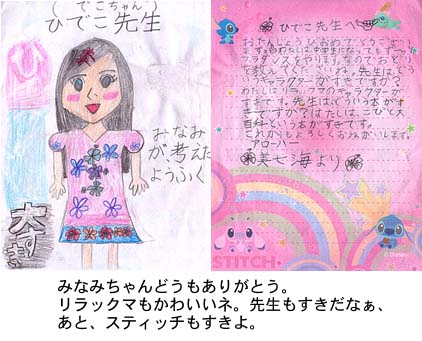 (でこちゃん)
ひでこ先生
みなみ
が考えた
ようふく
大
すき
ひでこ先生へ
おたんじょう日おめでとうござい
ます。
フラダンスをやります。なのでおどり
を教えてくださいね。先生はどうい
うキャラクターがすきですか?
わたしはリラックマのキャラクターが
すきです。先生はどういう本がす
きですか?わたしは、こびと大
百科という本がすきです。
これからもよろしくおねがいします。
アローハー
美七海より
STITCH
© Disney
みなみちゃんどうもありがとう。
リラックマもかわいいネ。先生もすきだなぁ、
あと、スティッチもすきよ。